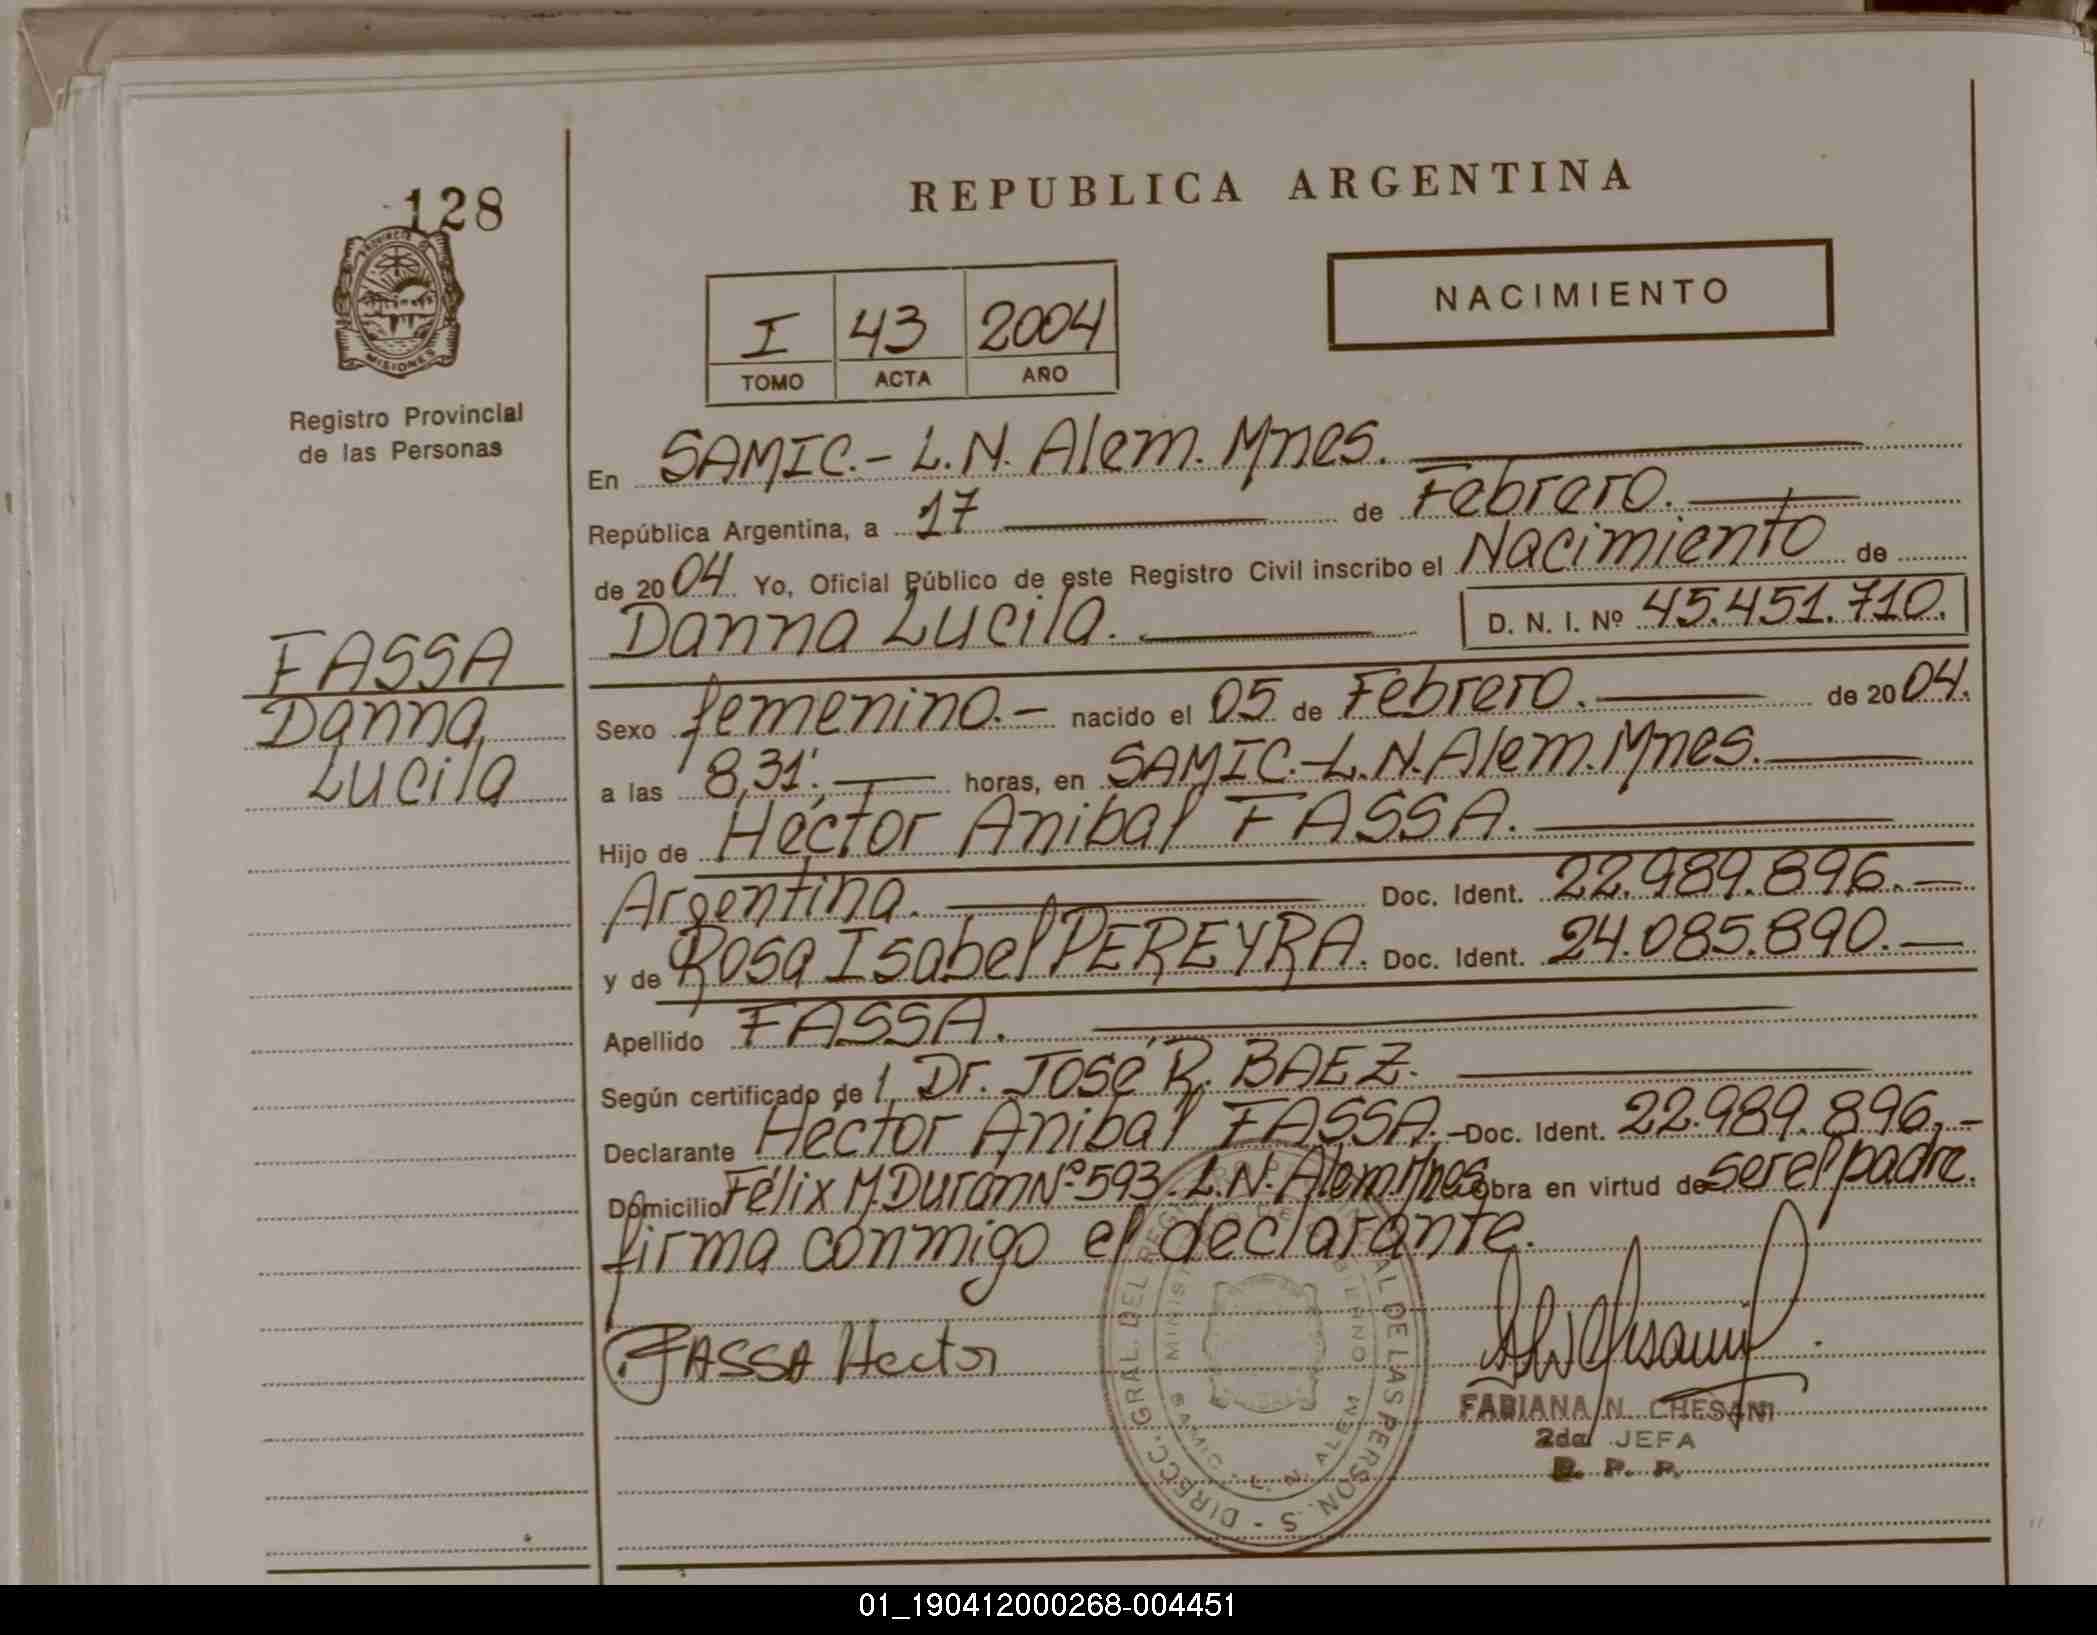 128
PROVINCIA DE
MISIONES
Registro Provincial
de las Personas
REPUBLICA ARGENTINA
NACIMIENTO
I 43 2004
TOMO ACTA AÑO
En SAMIC.- L.N. Alem. Mnes.
República Argentina, a 17 de Febrero.
de 2004 Yo, Oficial Público de este Registro Civil inscribo el Nacimiento de
Danna Lucila. D. N. I. Nº 45.451.710.
FASSA
Danna
Lucila
Sexo femenino.- nacido el 05 de Febrero. de 2004.
a las 8,31'. horas, en SAMIC.-L.N.Alem.Mnes.
Hijo de Héctor Anibal FASSA.
Argentina. Doc. Ident. 22.989.896.-
y de Rosa Isabel PEREYRA. Doc. Ident. 24.085.890.-
Apellido FASSA.
Según certificado de l, Dr. José R. BAEZ.
Declarante Héctor Anibal FASSA.-Doc. Ident. 22.989.896.-
Domicilio Félix M.Durán Nº 593. L.N. Alem Mnes obra en virtud de ser el padre.
firma conmigo el declarante.
FASSA Hector
DIRECC. GRAL. DEL REG
AL DE LAS PERSON. S
SAMIC - L. N. ALEM
FABIANA N. CHESANI
2da JEFA
R. P. P.
01_190412000268-004451